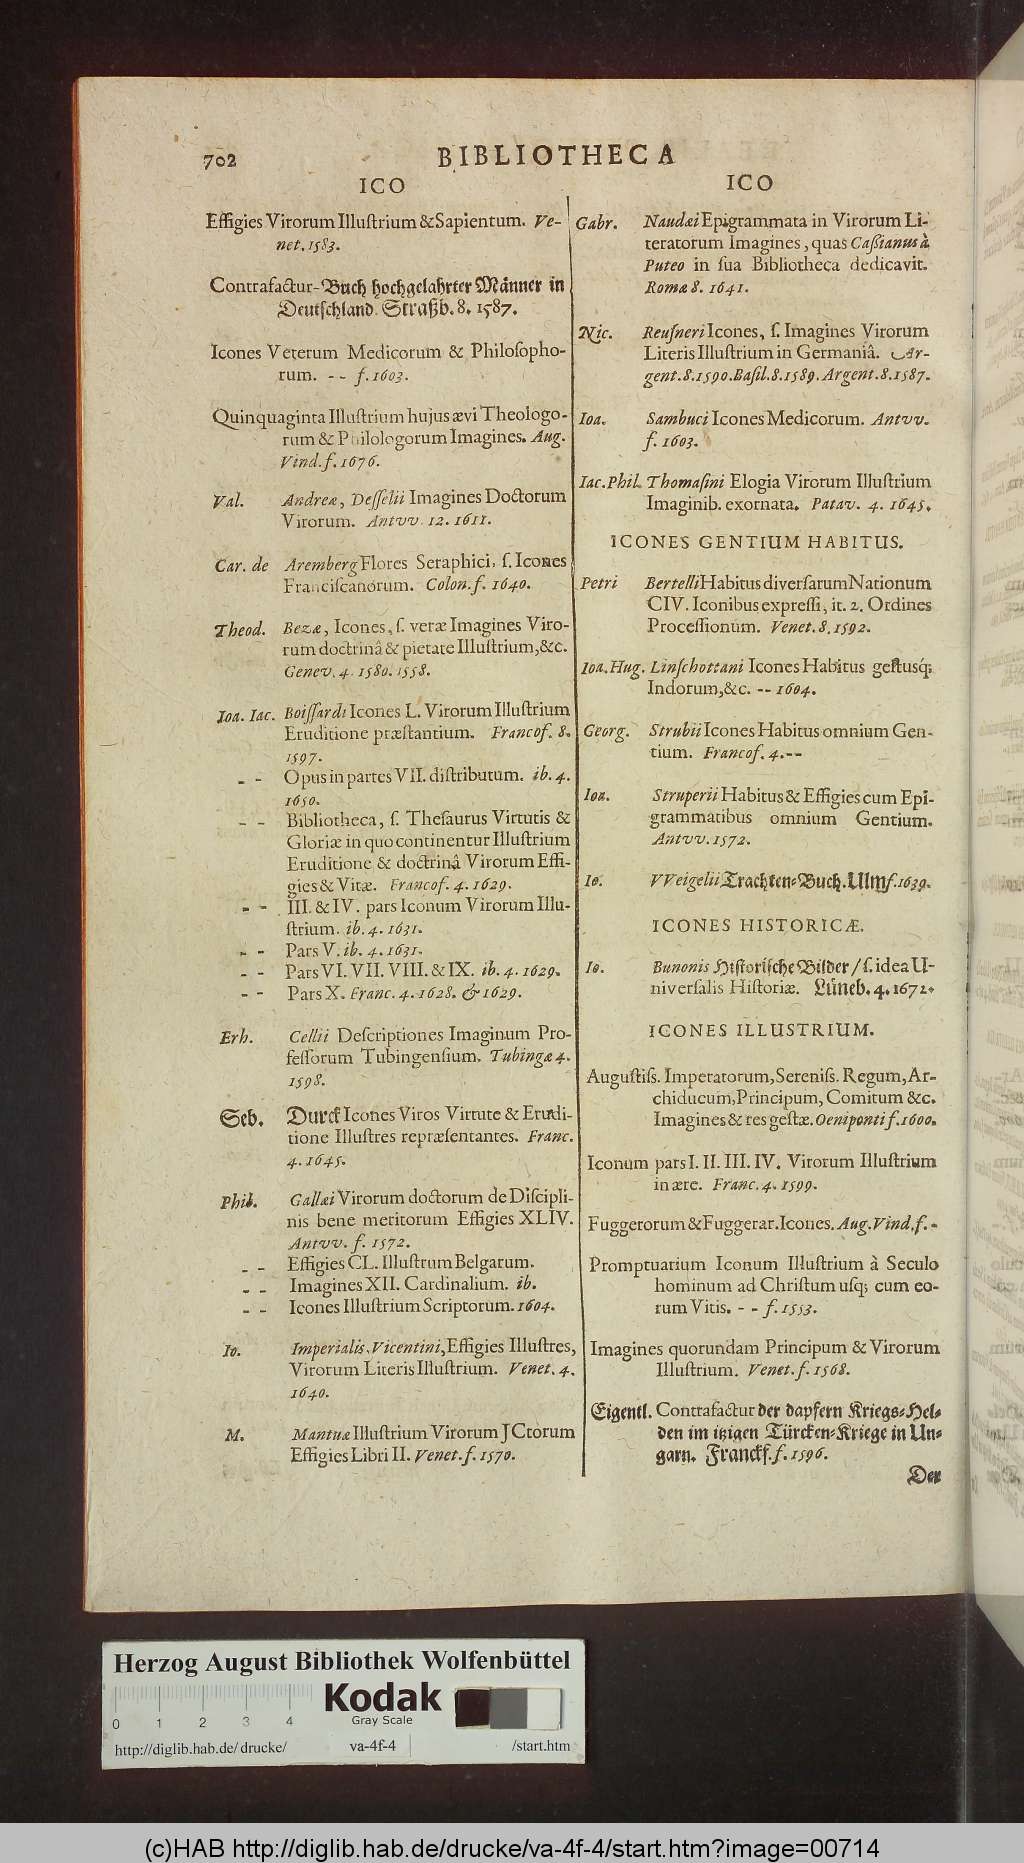 702
BIBLIOTHECA
ICO
Effigies Virorum Illuſtrium & Sapientum. Ve-
net. 1583.
Contrafactur-Buch hochgelahrter Männer in
Deutſchland. Straßb. 8. 1587.
Icones Veterum Medicorum & Philoſopho-
rum. -- f. 1603.
Quinquaginta Illuſtrium hujus ævi Theologo-
rum & Philologorum Imagines. Aug.
Vind. f. 1676.
Val. Andreæ, Deſſelii Imagines Doctorum
Virorum. Antvv. 12. 1611.
Car. de Aremberg Flores Seraphici, ſ. Icones
Franciſcanorum. Colon. f. 1640.
Theod. Bezæ, Icones, ſ. veræ Imagines Viro-
rum doctrinâ & pietate Illuſtrium, &c.
Genev. 4. 1580. 1558.
Ioa. Iac. Boiſſardi Icones L. Virorum Illuſtrium
Eruditione præſtantium. Francof. 8.
1597.
-- Opus in partes VII. diſtributum. ib. 4.
1650.
-- Bibliotheca, ſ. Theſaurus Virtutis &
Gloriæ in quo continentur Illuſtrium
Eruditione & doctrinâ Virorum Effi-
gies & Vitæ. Francof. 4. 1629.
-- III. & IV. pars Iconum Virorum Illu-
ſtrium. ib. 4. 1631.
-- Pars V. ib. 4. 1631.
-- Pars VI. VII. VIII. & IX. ib. 4. 1629.
-- Pars X. Franc. 4. 1628. & 1629.
Erh. Cellii Deſcriptiones Imaginum Pro-
feſſorum Tubingenſium. Tubingæ 4.
1598.
Seb. Durck Icones Viros Virtute & Erudi-
tione Illuſtres repræſentantes. Franc.
4. 1645.
Phil. Gallæi Virorum doctorum de Diſcipli-
nis bene meritorum Effigies XLIV.
Antvv. f. 1572.
-- Effigies CL. Illuſtrum Belgarum.
-- Imagines XII. Cardinalium. ib.
-- Icones Illuſtrium Scriptorum. 1604.
Io. Imperialis, Vicentini, Effigies Illuſtres,
Virorum Literis Illuſtrium. Venet. 4.
1640.
M. Mantuæ Illuſtrium Virorum JCtorum
Effigies Libri II. Venet. f. 1570.
ICO
Gabr. Naudæi Epigrammata in Virorum Li-
teratorum Imagines, quas Caſſianus à
Puteo in ſua Bibliotheca dedicavit.
Romæ 8. 1641.
Nic. Reuſneri Icones, ſ. Imagines Virorum
Literis Illuſtrium in Germaniâ. Ar-
gent. 8. 1590. Baſil. 8. 1589. Argent. 8. 1587.
Ioa. Sambuci Icones Medicorum. Antvv.
f. 1603.
Iac. Phil. Thomaſini Elogia Virorum Illuſtrium
Imaginib. exornata. Patav. 4. 1645.
ICONES GENTIUM HABITUS.
Petri Bertelli Habitus diverſarum Nationum
CIV. Iconibus expreſſi, it. 2. Ordines
Proceſſionum. Venet. 8. 1592.
Ioa. Hug. Linſchottani Icones Habitus geſtusq;
Indorum, &c. -- 1604.
Georg. Strubii Icones Habitus omnium Gen-
tium. Francof. 4. --
Ioa. Struperii Habitus & Effigies cum Epi-
grammatibus omnium Gentium.
Antvv. 1572.
Io. VVeigelii Trachten-Buch. Ulm f. 1639.
ICONES HISTORICÆ.
Io. Bunonis Hiſtoriſche Bilder / ſ. idea U-
niverſalis Hiſtoriæ. Lüneb. 4. 1672.
ICONES ILLUSTRIUM.
Auguſtiſs. Imperatorum, Sereniſs. Regum, Ar-
chiducum, Principum, Comitum &c.
Imagines & res geſtæ. Oeniponti f. 1600.
Iconum pars I. II. III. IV. Virorum Illuſtrium
in ære. Franc. 4. 1599.
Fuggerorum & Fuggerar. Icones. Aug. Vind. f. -
Promptuarium Iconum Illuſtrium à Seculo
hominum ad Chriſtum uſq; cum eo-
rum Vitis. -- f. 1553.
Imagines quorundam Principum & Virorum
Illuſtrium. Venet. f. 1568.
Eigentl. Contrafactur der dapfern Kriegs-Hel-
den im itzigen Türcken-Kriege in Un-
garn. Franckf. f. 1596.
Der
Herzog August Bibliothek Wolfenbüttel
Kodak
Gray Scale
0 1 2 3 4
http://diglib.hab.de/drucke/ va-4f-4 /start.htm
(c)HAB http://diglib.hab.de/drucke/va-4f-4/start.htm?image=00714